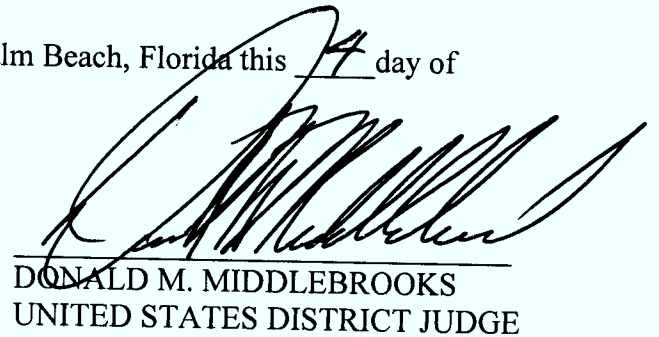 lm Beach, Florida this 4 day of
DONALD M. MIDDLEBROOKS
UNITED STATES DISTRICT JUDGE